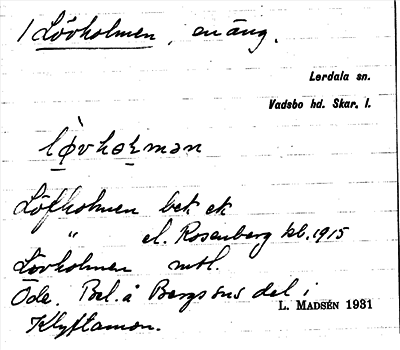 1 Lövholmen, en äng.
Lerdala sn.
Vadsbo hd. Skar. l.
lø̀vhɷlmən
Löfholmen bet ek
" el. Rosenberg kb. 1915
Lövholmen mtl.
Öde. Bel. å Bergs sns del i
L. MADSÉN 1931
Klyftamon.